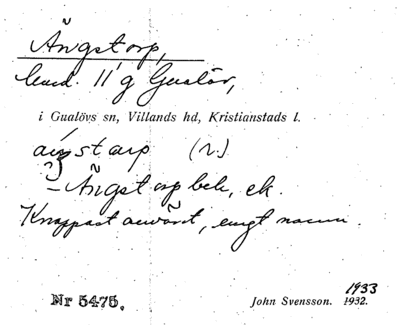 Ängstorp,
lund. 11 g Gualöv,
i Gualövs sn, Villands hd, Kristianstads l.
aiŋstarp (r.)
– Ängstorp bek, ek.
Knappast använt, engt namn.
Nr 5475.
John Svensson. 1932. 1933